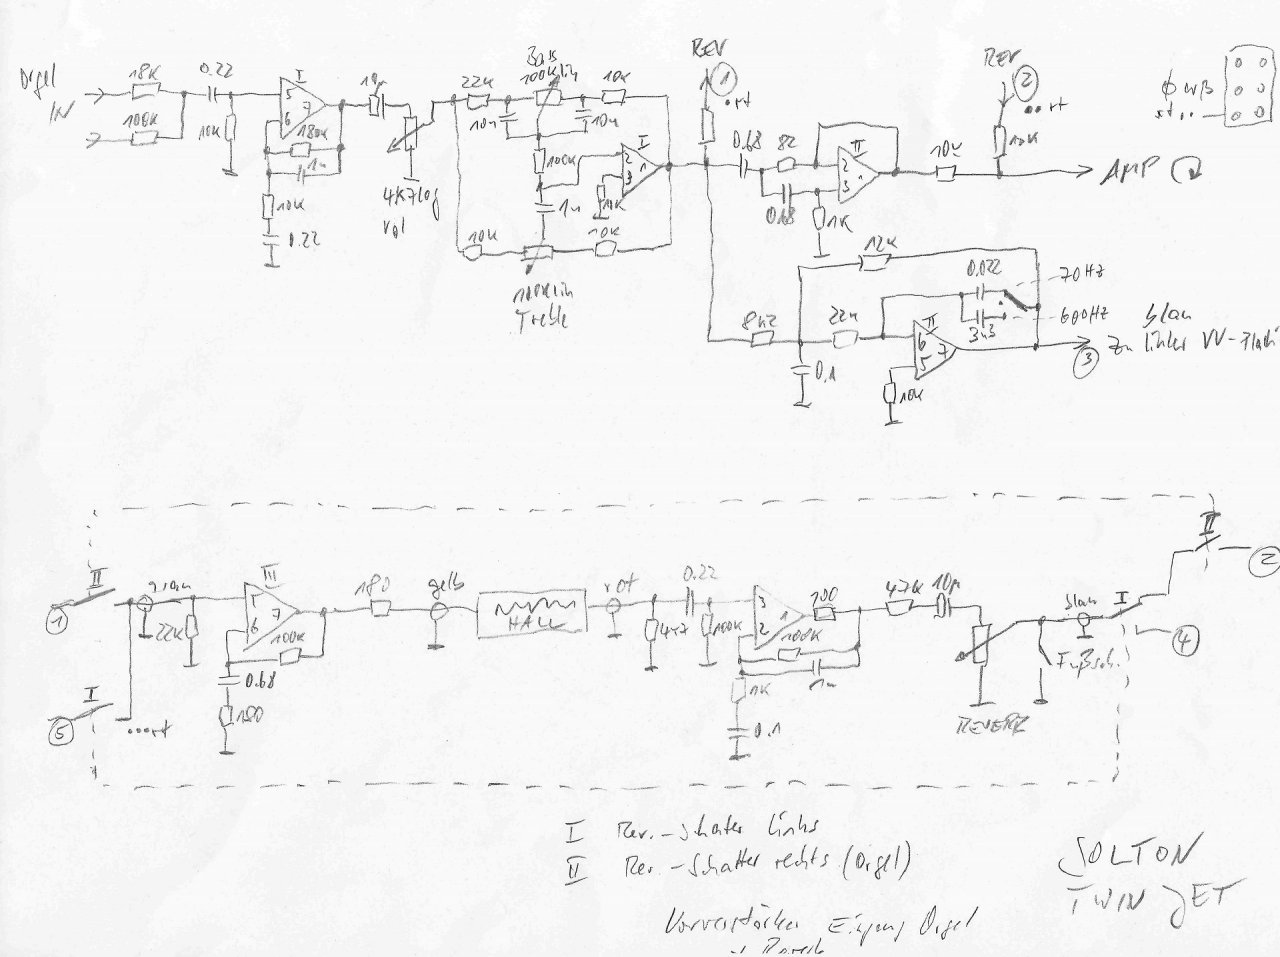 Orgel
IN
18K
100K
0.22
10K
I
5
6
7
180K
1n
10K
0.22
10µ
4K7log
Vol
22K
Bass
100Klin
10K
10n
10n
100K
1n
I
2
3
1
10K
10K
10K
100Klin
Treble
REV
1
...rt
0.68
82
0.68
II
2
3
1
1K
10K
REV
2
...rt
10K
AMP
Φ wß
st..
12K
8K2
0.1
22K
0.022
3n3
70HZ
600HZ
II
6
5
7
10K
3
blau
Zu linker VV-
II
1
I
5
...rt
grau
22K
III
5
6
7
100K
0.68
180
180
gelb
HALL
rot
4K7
0.22
100K
3
2
1
100
100K
1n
1K
0.1
4.7K
10µ
REVERB
Fußsch.
blau
I
4
II
2
I Rev.-Schalter links
II Rev.-Schalter rechts (Orgel)
Vorverstärker Eingang Orgel
SOLTON
TWIN JET